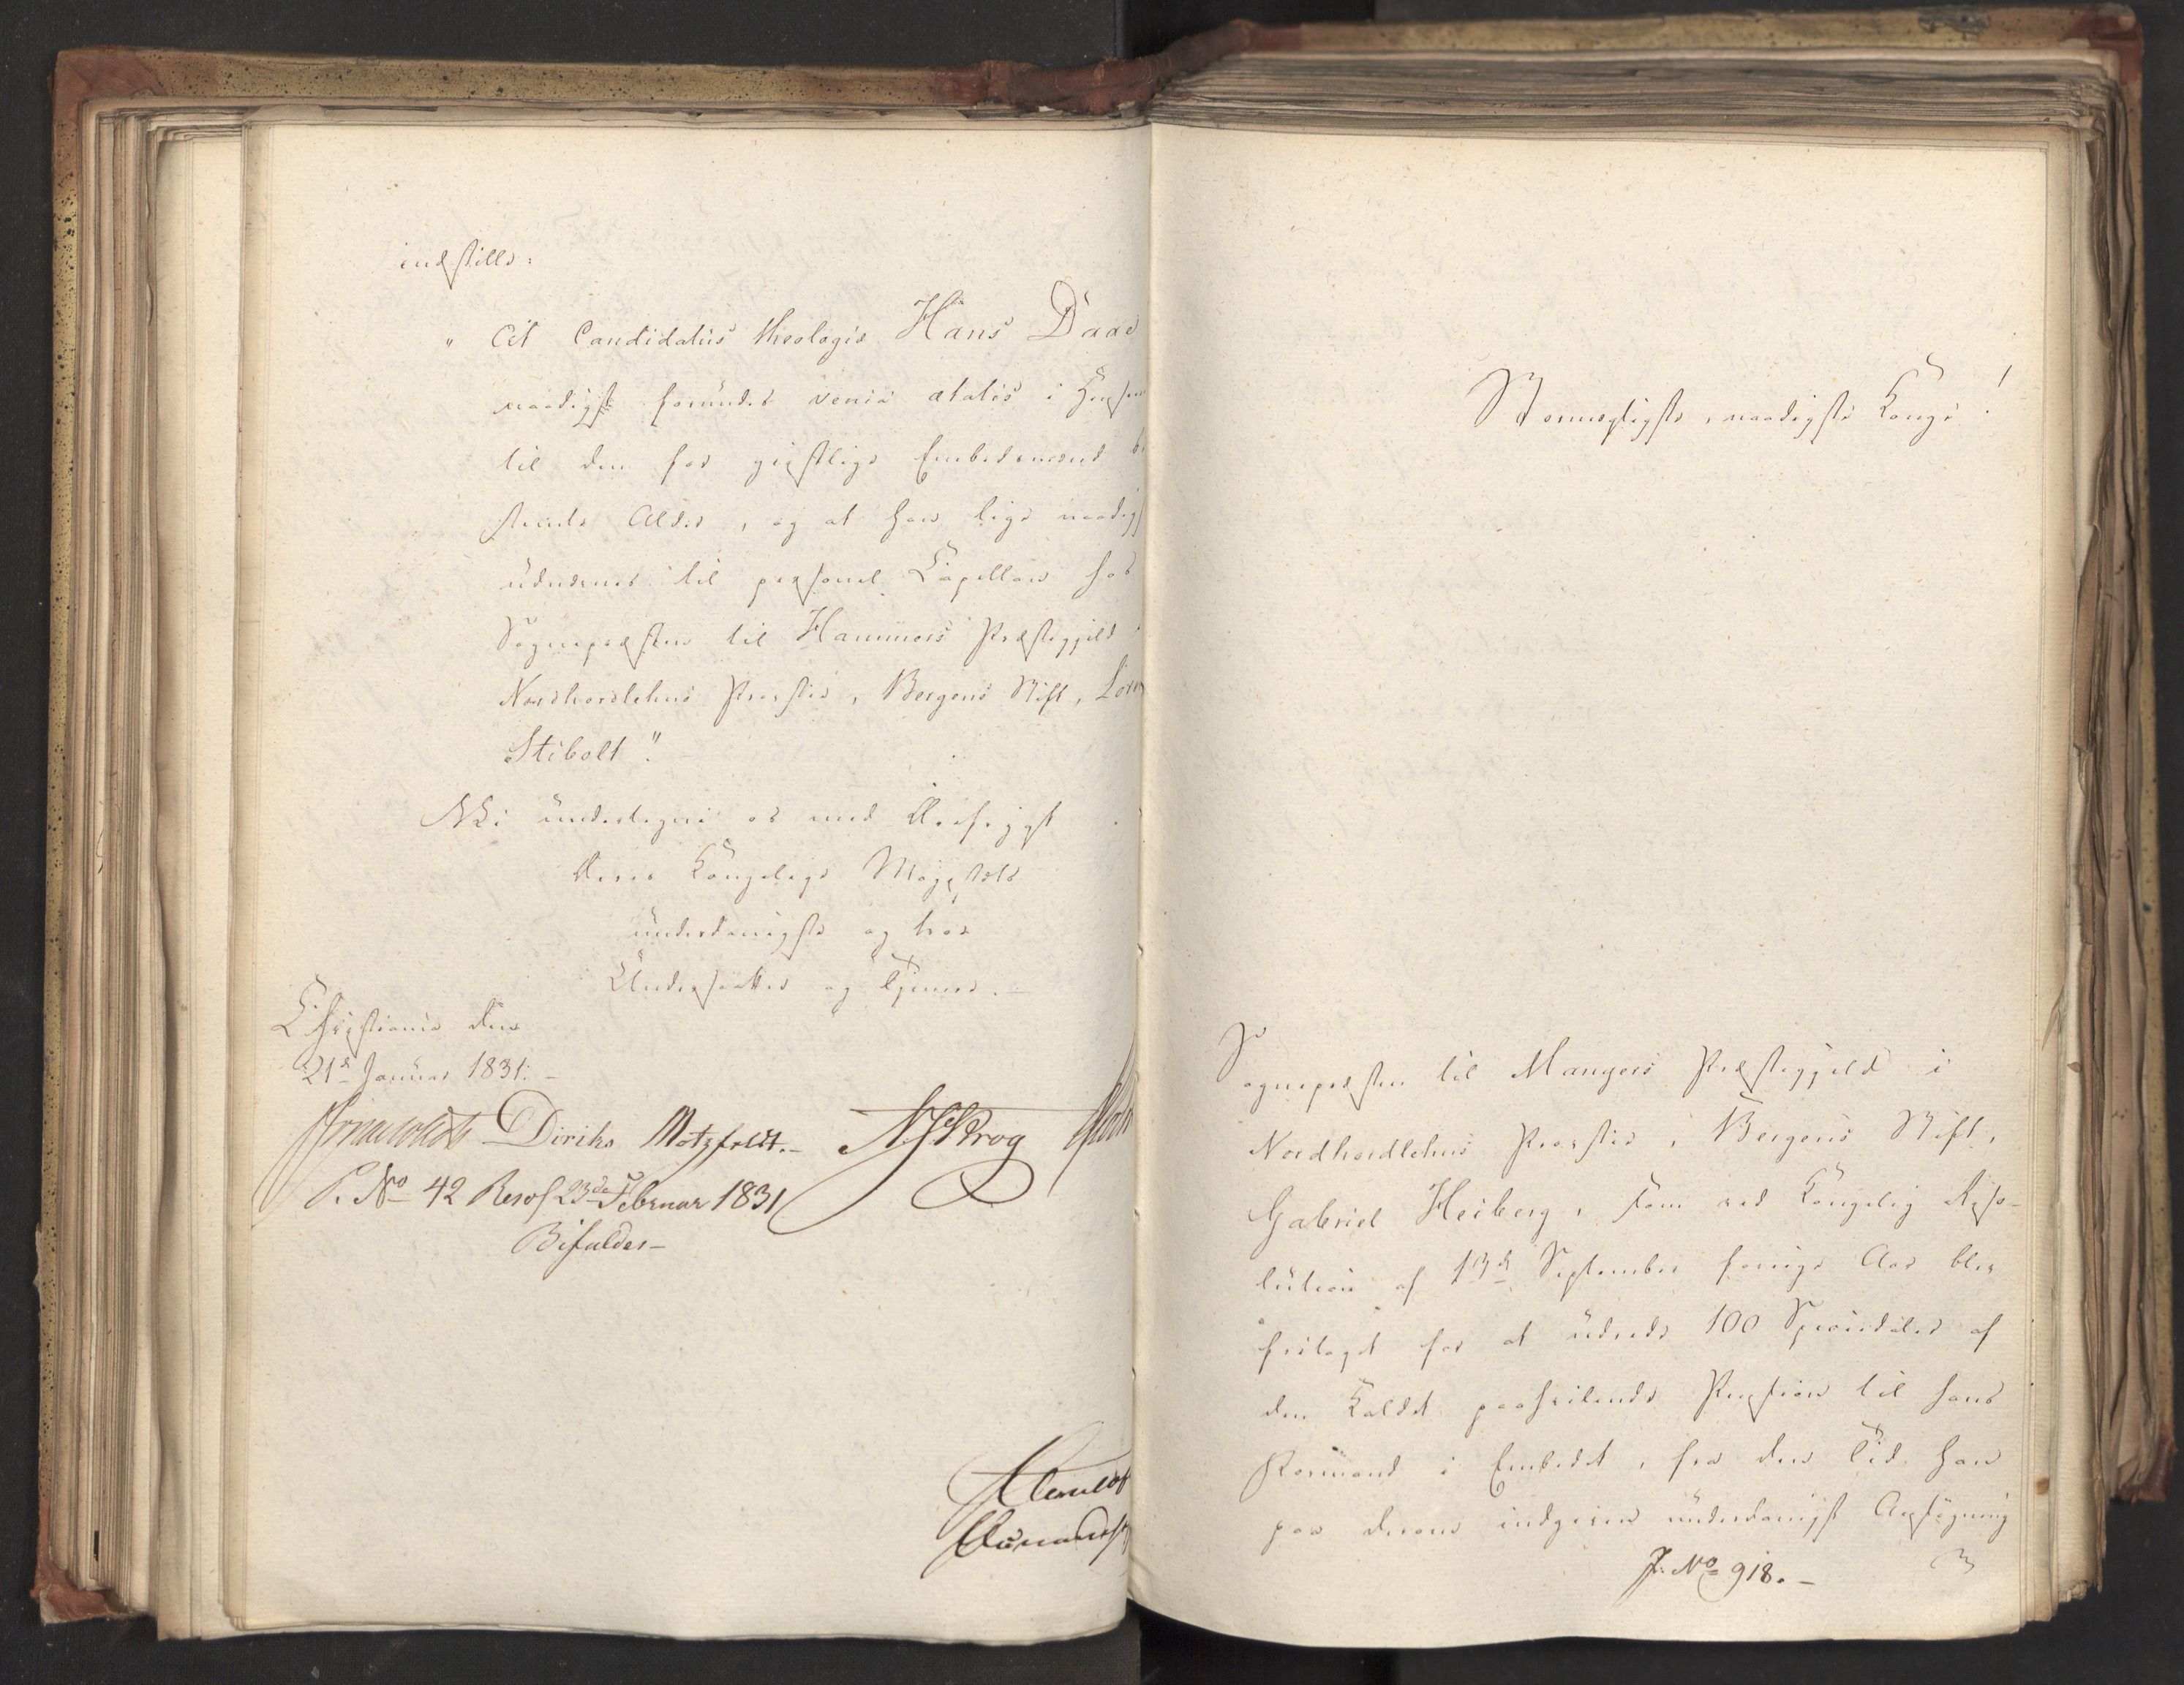 indstille:
"At Candidatus theologiæ Hans Daae
naadigst forundes venia ætatis i Hensee
til den for geistlige Embedsmænd be
stemte Alder, og at han lige naadigst
udnævnes til personel Capellan hos
Sognepræsten til Hammers Præstegjeld i
Nordhordlehns Provstie, Bergens Stift,
Stibolt".
Vi undertegne os med Ærefrygt
Deres Kongelige Majestæts
underdanigste og troe
Undersatter og Tjenere.-
Christiania den
21de Januar 1831.-
Diriks Motzfeldt.- Krog
P. No 42 Resol 23de Februar 1831
Bifaldes-
Stormægtigste, naadigste Konge!
Sognepræsten til Mangers Præstegjeld i
Nordhordlehns Provstie, Bergens Stift,
Gabriel Heiberg, som ved Kongelig Reso-
lution af 13de September forrige Aar blev
fritaget for at udrede 100 Speciedaler af
den Kaldet paahvilende Pension til hans
Formand i Embedet, fra den Tid han
paa derom indgiven underdanigst Ansøgning
J: No 918.-